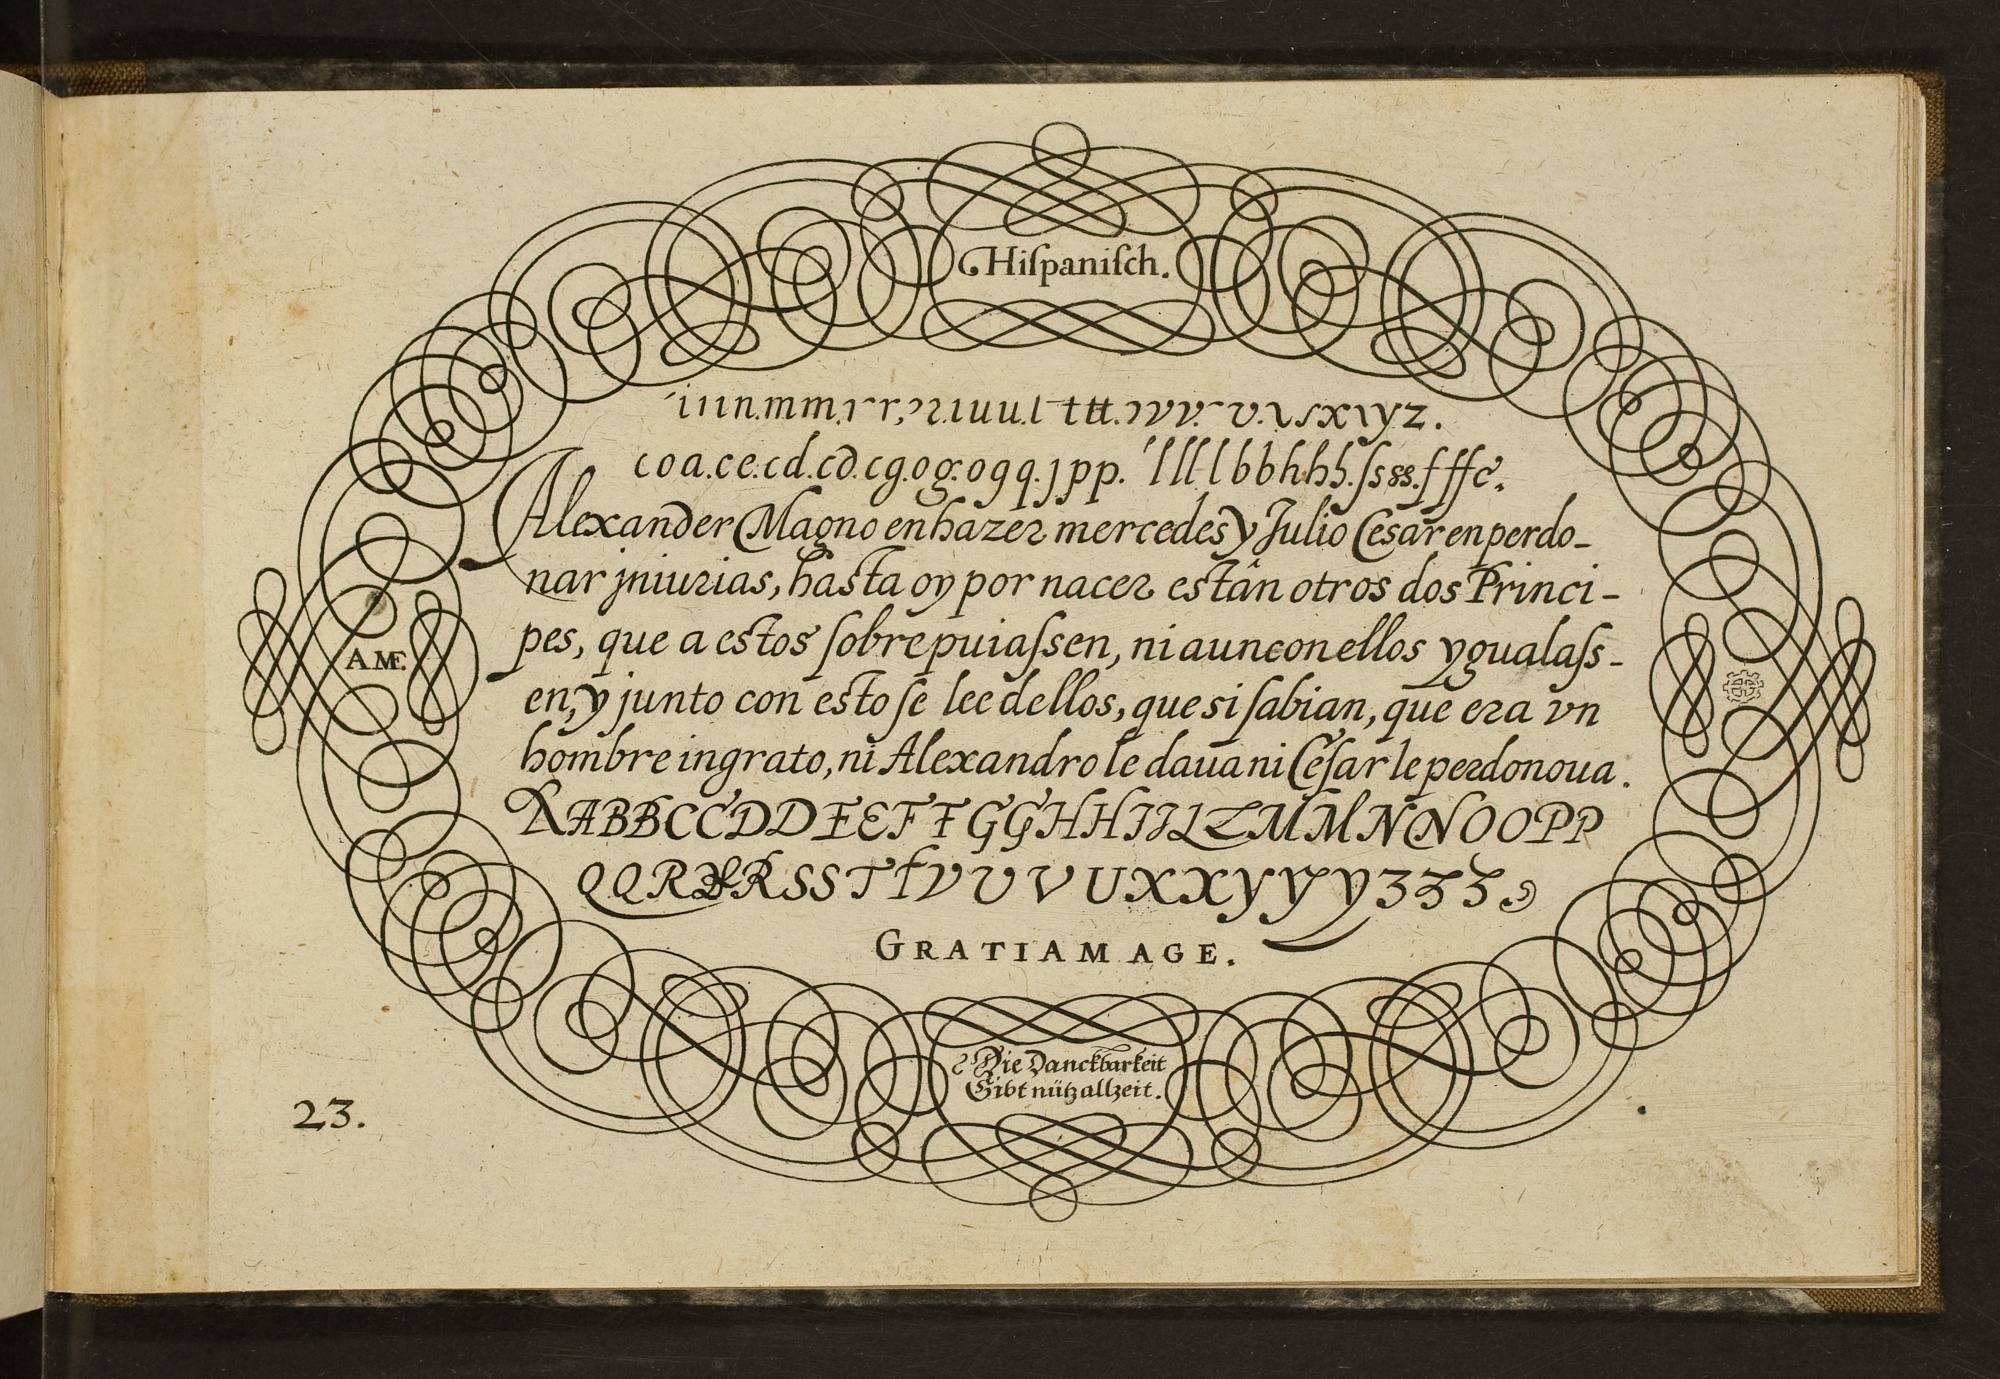 Hiſpaniſch.
ııın.mm.ırr,?2ıuu.l ttt.ıvv.v.ııſxıyz.
coa.ce.cd.cd.cg.og.ogq.jpp. llllbbhhh.ſsss.fffe.
Alexander Magno en hazer mercedes y Julio Cesar en perdo-
nar jniurias, hasta oy por nacer estàn otros dos Princi-
pes, que a estos ſobrepuiaſsen, ni aun con ellos ygualaſs-
en, y junto con esto ſe lee dellos, que si ſabian, que era vn
hombre ingrato, ni Alexandro le daua ni Ceſar le perdonoua.
AABBCCDDEEFFGGHHIILLMMNNOOPP
QQRRRSSTTVUVUXXYYYZZZ
GRATIAM AGE.
A.ME.
Die Danckbarkeit
Gibt nütz allzeit.
23.